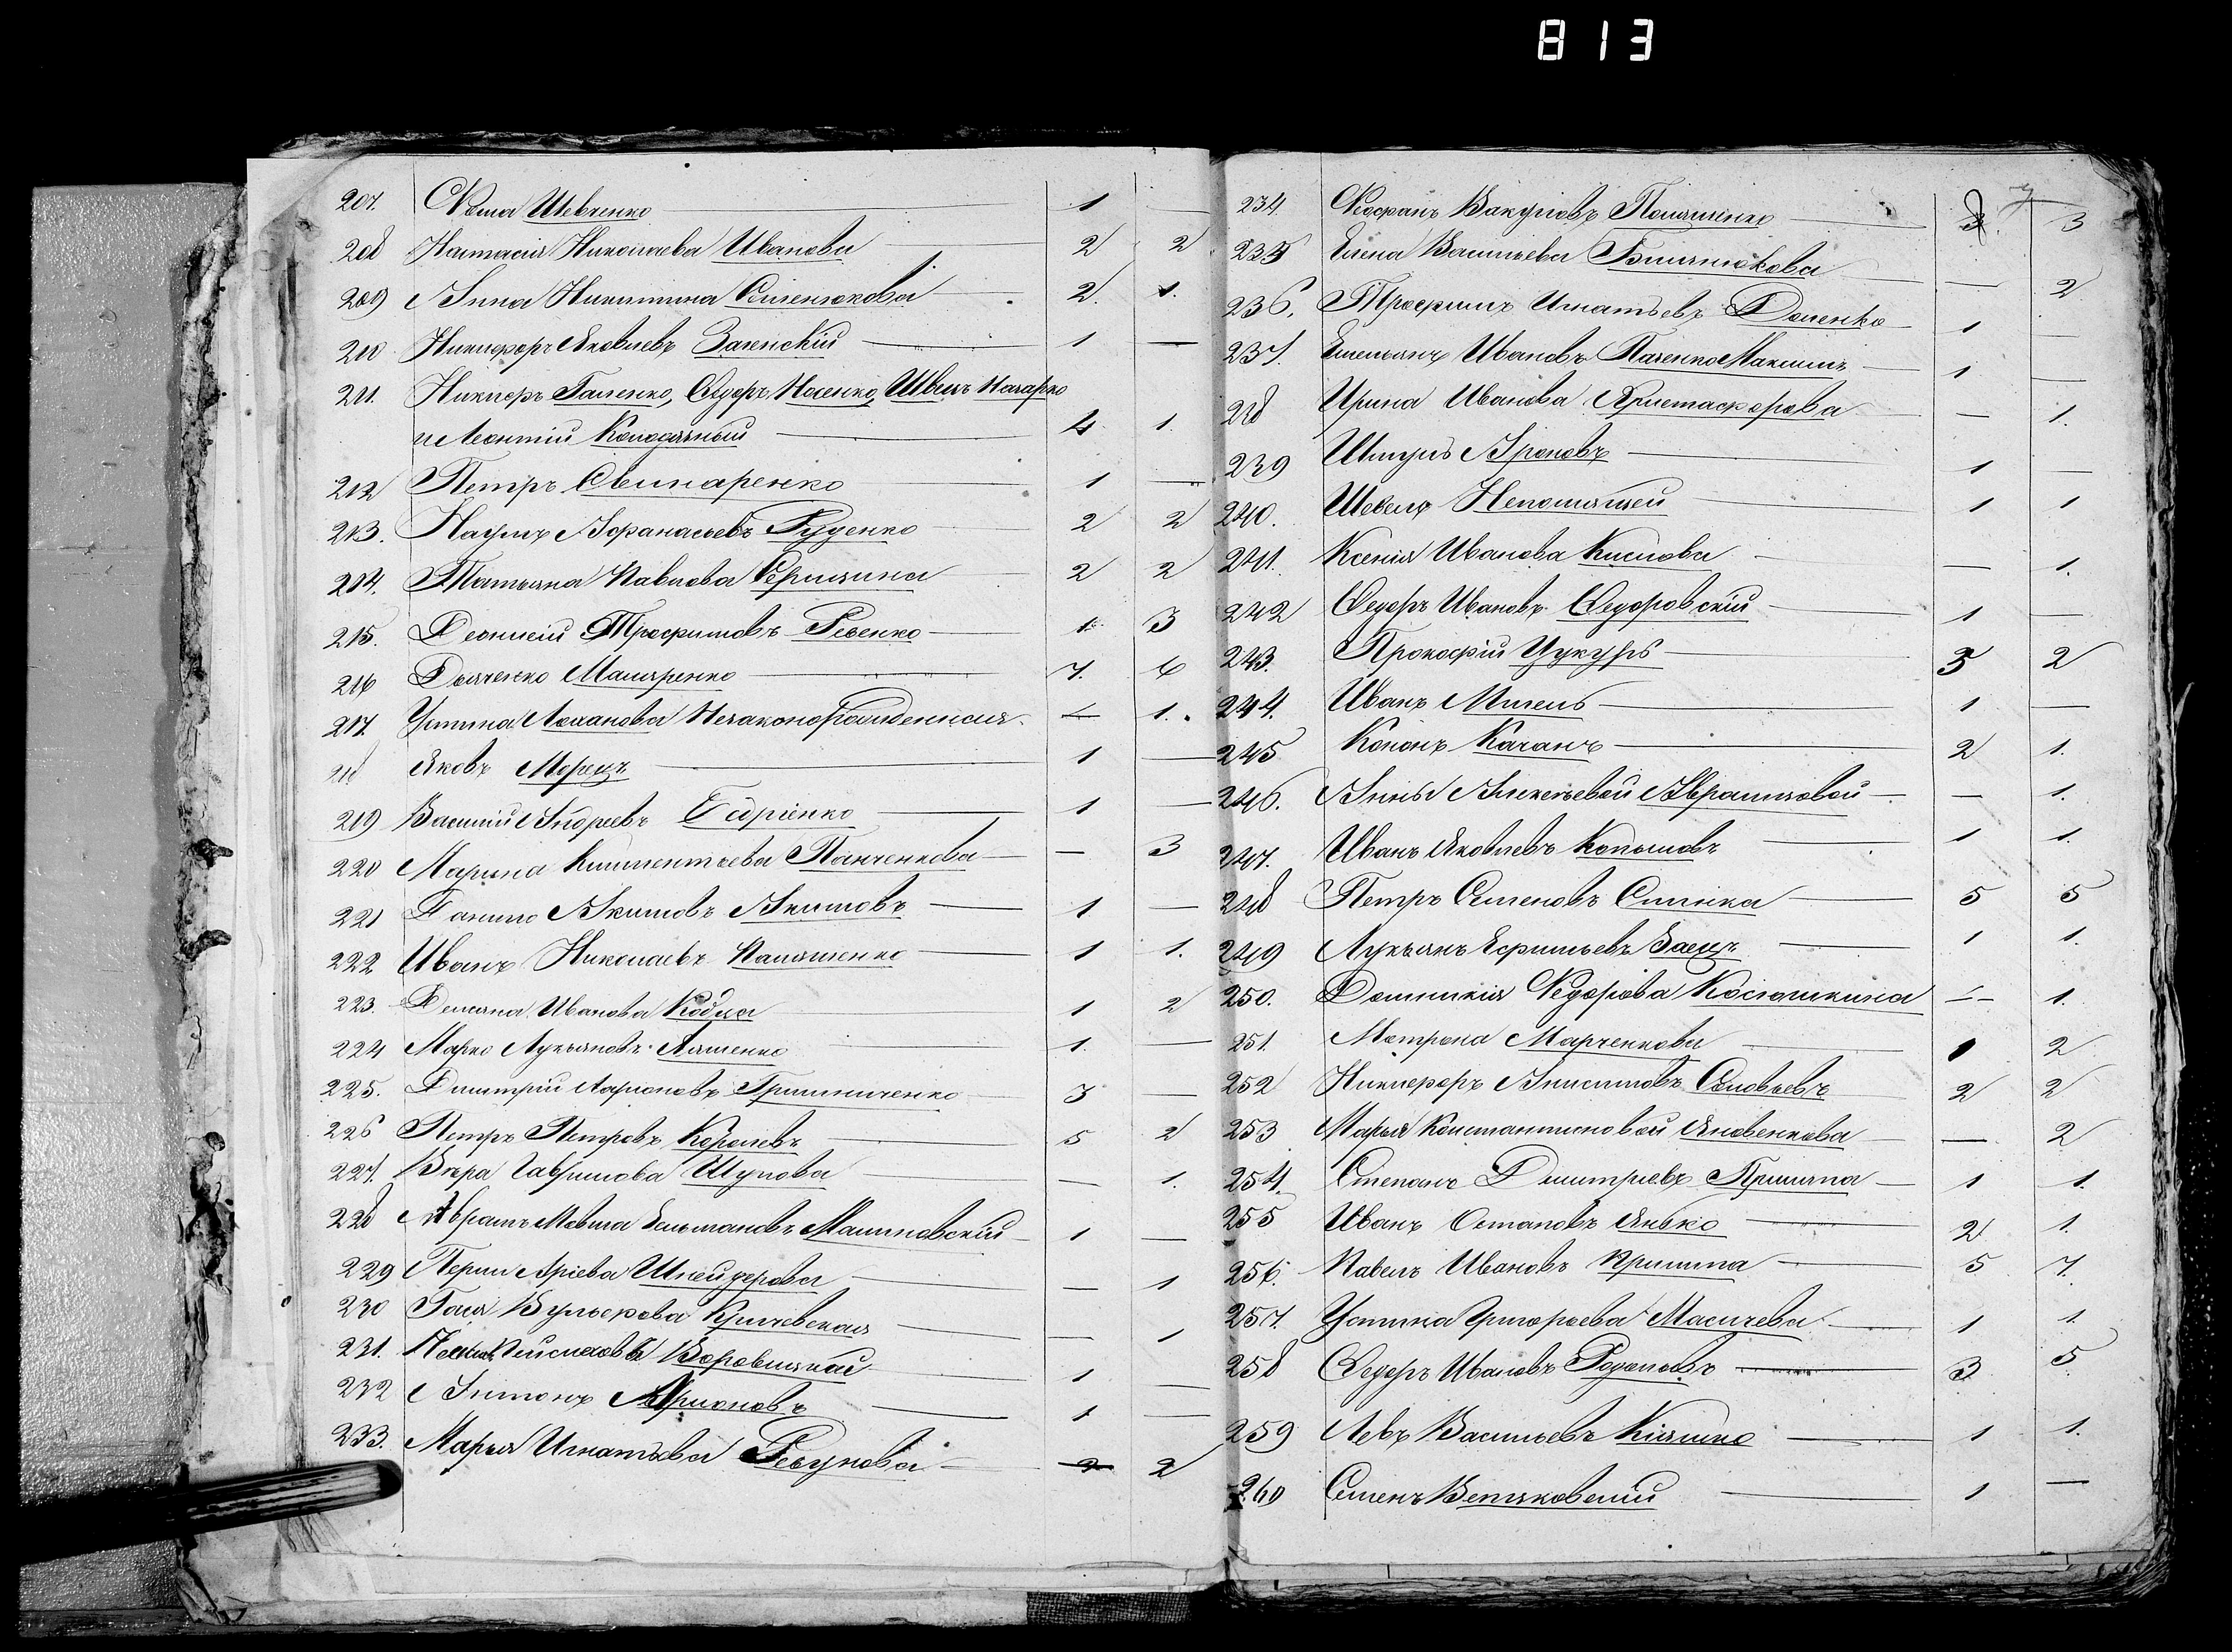 813
7
207. Фома Шевченко — 1 —
208 Настасія Николаева Иванова — 2 2
209 Анна Никитина Семенюкова — 2. 1.
210 Никифоръ Яковлевъ Заленскій — 1 —
211. Никифоръ Галенко, Федоръ Носенко, Швецъ Назарко
и Леонтій Колодяжный — 4 1.
212 Петръ Свинаренко — 1 —
213. Наумъ Афанасьевъ Руденко — 2 2
214. Татьяна Павлова Сермяжна — 2 2
215. Деонисій Трофимовъ Ревенко — 1. 3
216 Дьяченко Маляренко — 7. 6
217. Устина Лоханова Незаконорожденная — 1.
218 Яковъ Морецъ — 1 —
219 Василій Андреевъ — 1 —
220 Марина Климентьева Панченкова — — 3
221 Данило Акимовъ Акимовъ — 1 —
222 Иванъ Николаевъ Паляшенко — 1 1.
223. Демяна Иванова — 1 2
224 Марко Лукьяновъ Ляшенко — 1. —
225. Дмитрій Ларионовъ Гришниченко — 3 —
226 Петръ Петровъ Королевъ — 5 2
227. Вѣра Гаврилова Шупова — — 1.
228 Абрамъ Мовша Зельмановъ Малиновскій — 1 —
229 Перли Аріева Шнейдерова — — 1
230 Гася Вульфова Кричевская — — 1
231. Боровицкій — 1 —
232 Антонъ Ларионовъ — 1 —
233. Марья Игнатьева Ревунова — 2 2
234. Феофанъ Вакуловъ — 3. 3
235 Елена Васильева — — 2
236. Трофимъ Игнатьевъ Доленко — 1 —
237. Емельянъ Ивановъ Паченко Максимъ — 1 —
238 Ирина Иванова Христофорова — — 1.
239 Шмуль Ароновъ — 1 —
240. Шевель Непомлящей — 1 1
241. Ксенія Иванова Кислова — — 1.
242 Федоръ Ивановъ Федоровскій — 1 —
243. Прокофій Цукуръ — 3 2
244. Иванъ Мигель — 1 —
245 Кононъ Качанъ — 2 1.
246. Анны Алексѣевой Абрамовой — — 1.
247. Иванъ Яковлевъ Копыловъ — 1 1.
248 Петръ Семеновъ Слинка — 5 5
249 Лукьянъ Ефимьевъ Заецъ — 1 1.
250. Домникія Федорова Косюшкина — — 1.
251. Матрона Марченкова — 1 2
252 Никифоръ Анисимовъ Соловьевъ — 2 2
253 Марья Константиновой Яковенкова — — 2
254. Степанъ Дмитріевъ Примяна — 1 1.
255 Иванъ Остаповъ Янько — 2 1.
256. Павелъ Ивановъ Примина — 5 7.
257. Устина Григорьева Масичева — 1 1.
258 Федоръ Ивановъ Родоновъ — 3 5.
259 Левъ Васильевъ Кіяшко — 1 1.
260 Семенъ Ветяковскій — 1 —